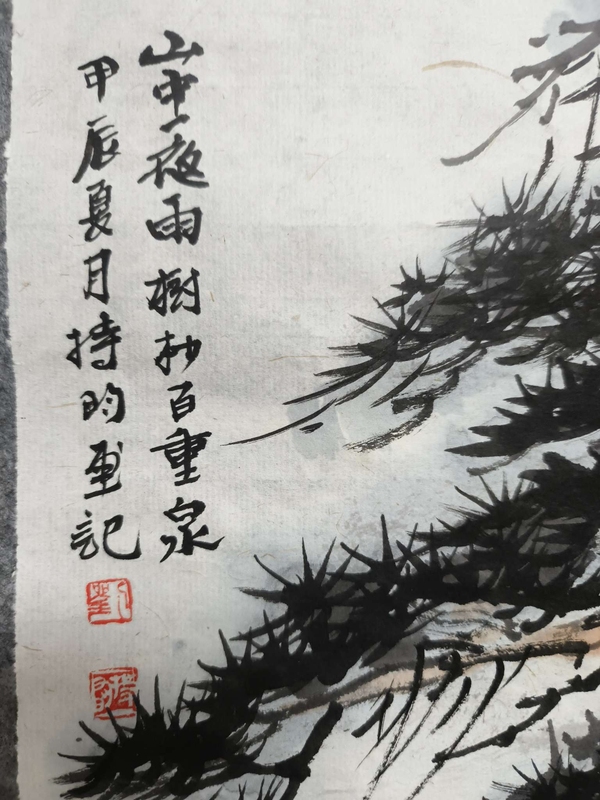 山中一夜雨樹杪百重泉
甲辰夏月持昀畫記